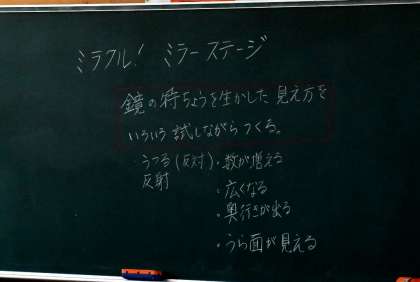 ミラクル! ミラーステージ
鏡の特ちょうを生かした見え方を
いろいろ試しながらつくる。
うつる(反対)・数が増える
反射
・広くなる
・奥行きが出る
・うら面が見える